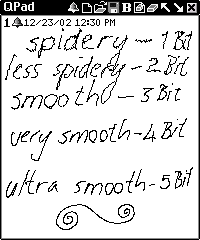 QPad
1 12/23/02 12:30 PM
spidery - 1 Bit
less spidery - 2 Bit
smooth - 3 Bit
very smooth - 4 Bit
ultra smooth - 5 Bit